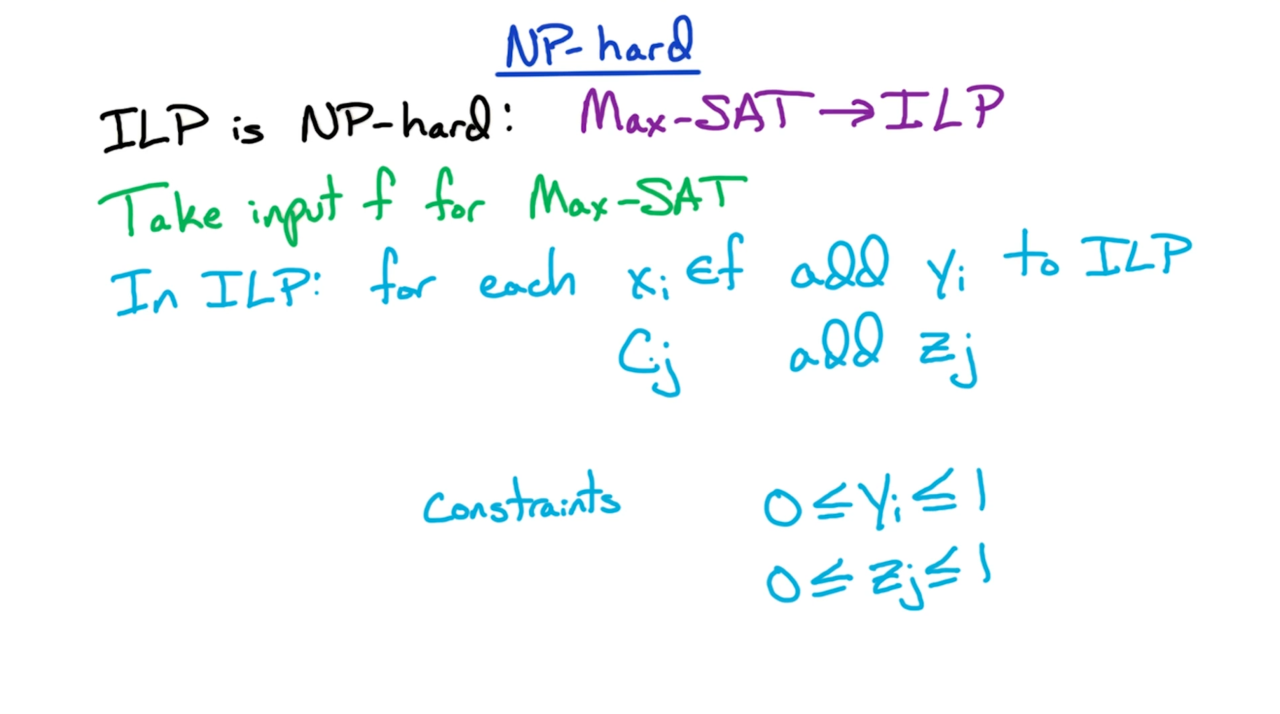 NP-hard
ILP is NP-hard: Max-SAT → ILP
Take input f for Max-SAT
In ILP: for each xᵢ ∈ f add yᵢ to ILP
Cⱼ add zⱼ
Constraints 0 ≤ yᵢ ≤ 1
0 ≤ zⱼ ≤ 1